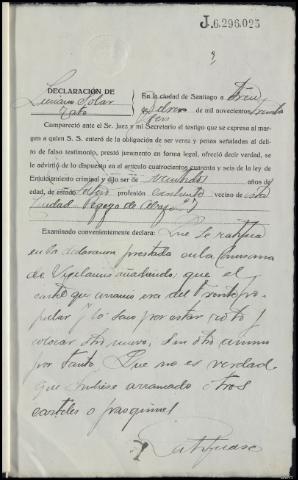 J.6.296.023
DECLARACIÓN DE
Luciano Solar
Rato
En la ciudad de Santiago a Trein
ta de mil novecientos treinta
y seis
Compareció ante el Sr. Juez y mi Secretario el testigo que se expresa al mar-
gen a quien S. S. enteró de la obligación de ser veraz y penas señaladas al delito
de falso testimonio, prestó juramento en forma legal, ofreció decir verdad, se
le advirtió de lo dispuesto en el artículo cuatrocientos cuarenta y seis de la ley de
Enjuiciamiento criminal y dijo ser de veintidos años
de edad, de estado Soltero profesión vecino de esta
Ciudad
Examinado convenientemente declara: Que se ratifica
en la declaracion prestada en la Comisaria
de Vigilancia añadiendo: que el
cartel que arranco era del Frente po-
pular y lo hizo por estar roto y
colocar otro nuevo, sin otro animo
por tanto. Que no es verdad
que hubiese arrancado otros
carteles o pasquines